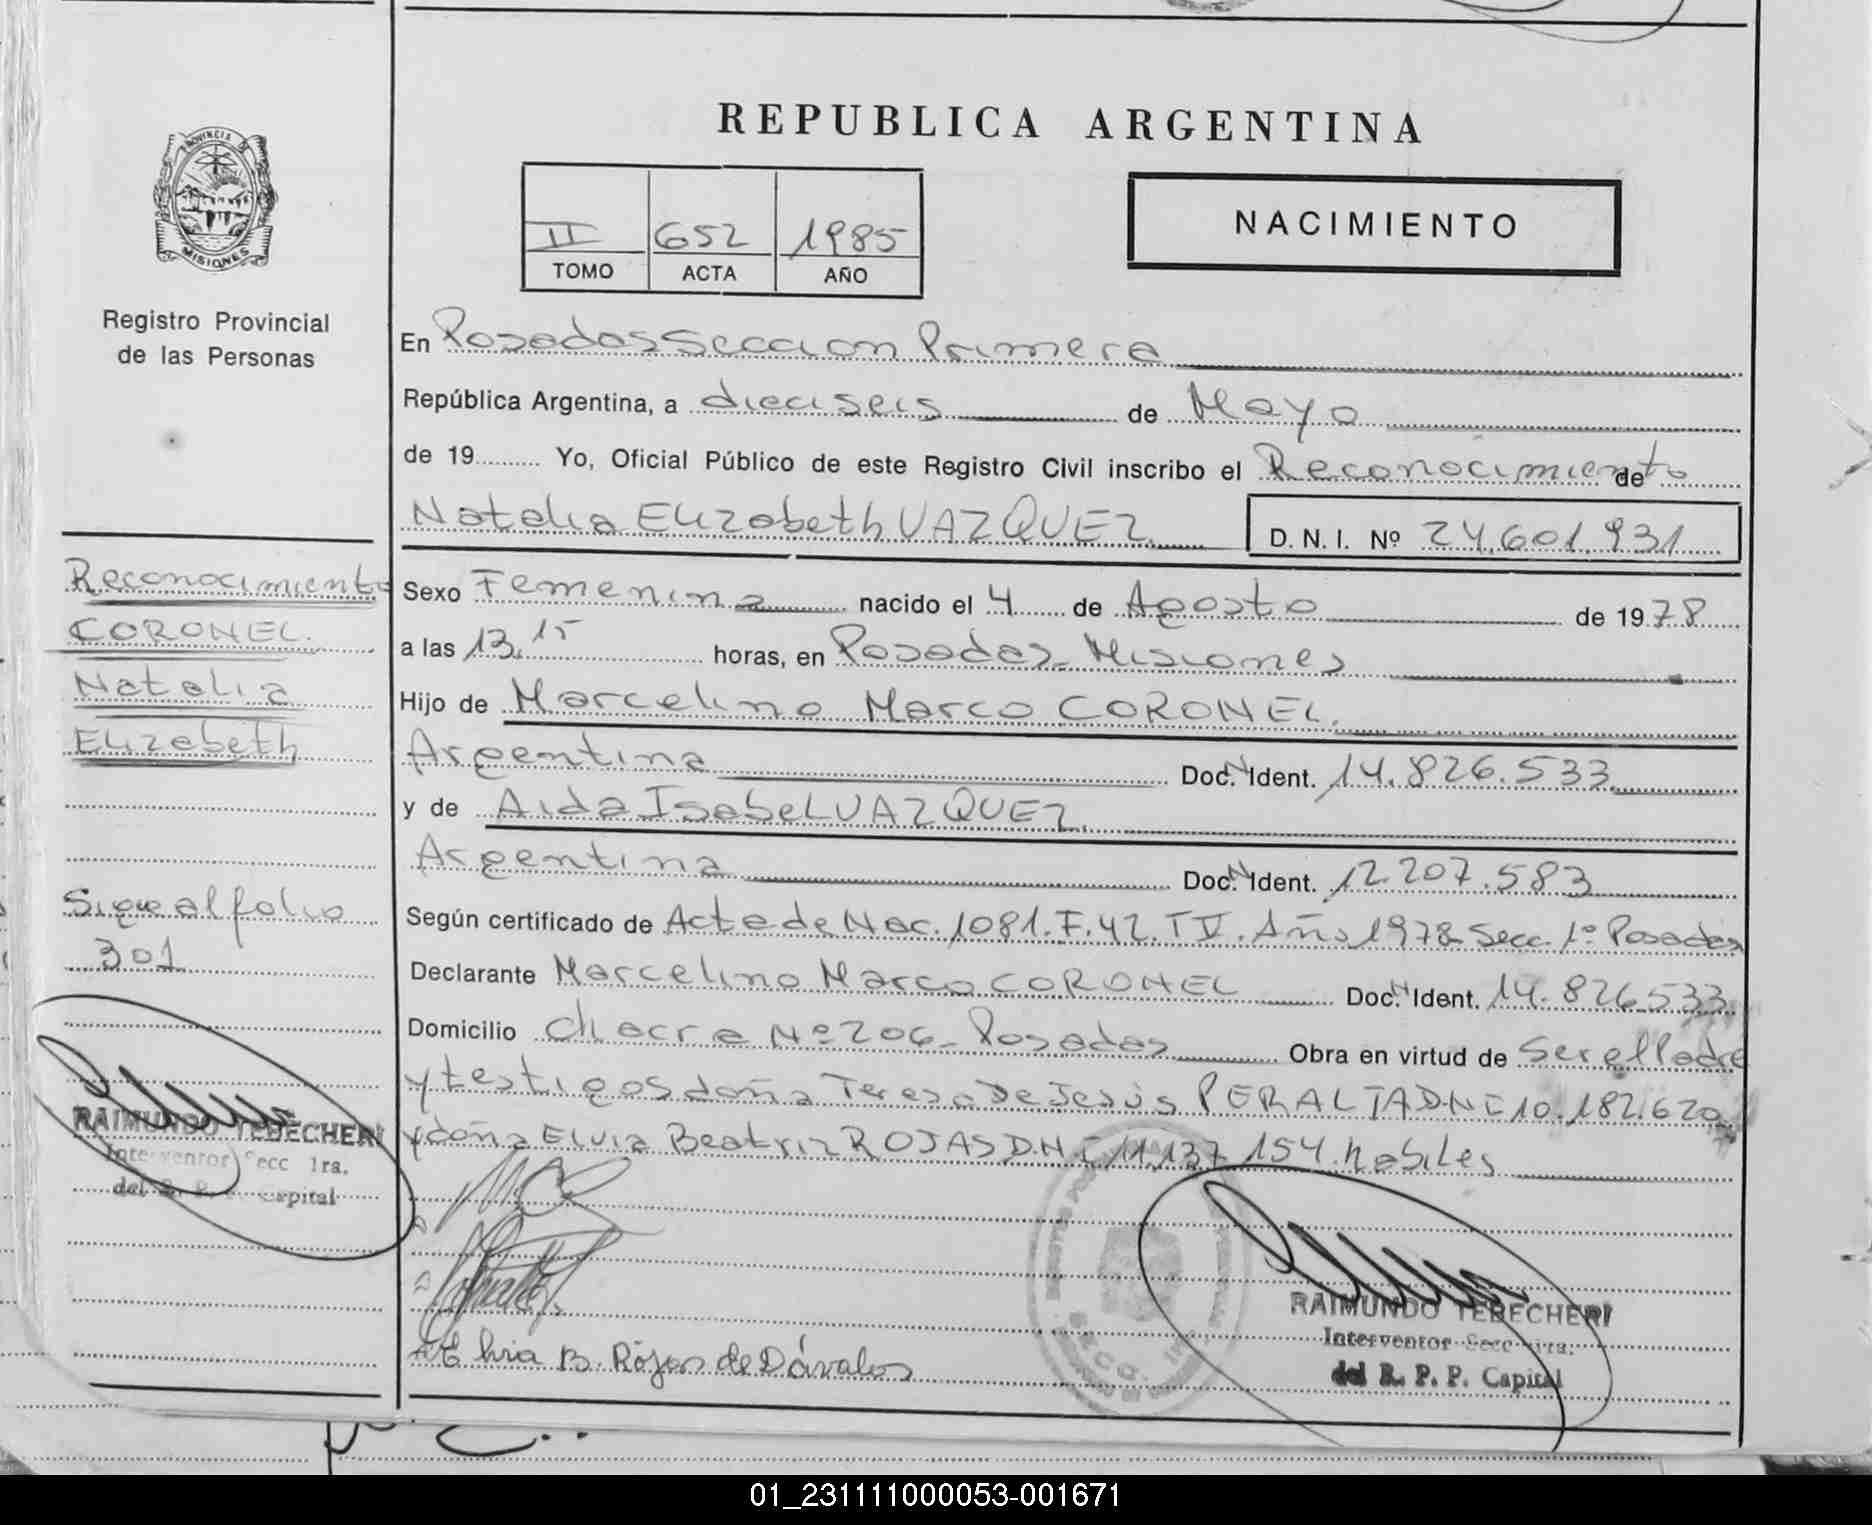 REPUBLICA ARGENTINA
PROVINCIA DE
MISIONES
Registro Provincial
de las Personas
II 652 1985
TOMO ACTA AÑO
NACIMIENTO
En Posadas Seccion Primera
República Argentina, a dieciseis de Mayo
de 19 Yo, Oficial Público de este Registro Civil inscribo el Reconocimiento de
Natalia Elizabeth VAZQUEZ D. N. I. Nº 24.601.931
Sexo Femenina nacido el 4 de Agosto de 1978
a las 13.15 horas, en Posadas - Misiones
Hijo de Marcelino Marco CORONEL.
Argentina Doc. N Ident. 14.826.533
y de Aida Isabel VAZQUEZ.
Argentina Doc. N Ident. 12.207.583
Según certificado de Acta de Nac. 1081. F. 42. T IV. Año 1978 Secc. 1º Posadas
Declarante Marcelino Marco CORONEL Doc. N Ident. 14.826.533
Domicilio Chacra Nº 206 - Posadas Obra en virtud de Ser el Padre
y testigos doña Teresa De Jesús PERALTA DNI 10.182.620
y doña Elvia Beatriz ROJAS D.N.I 11.137.154. habiles
Elvia B. Rojas de Dávalos
RAIMUNDO TEBECHERI
Interventor Secc 1ra.
del R. P. P. Capital
Reconocimiento
CORONEL.
Natalia
Elizabeth
Sigue al folio
301
RAIMUNDO TEBECHERI
Interventor Secc 1ra.
del R. P. P. Capital
01_231111000053-001671